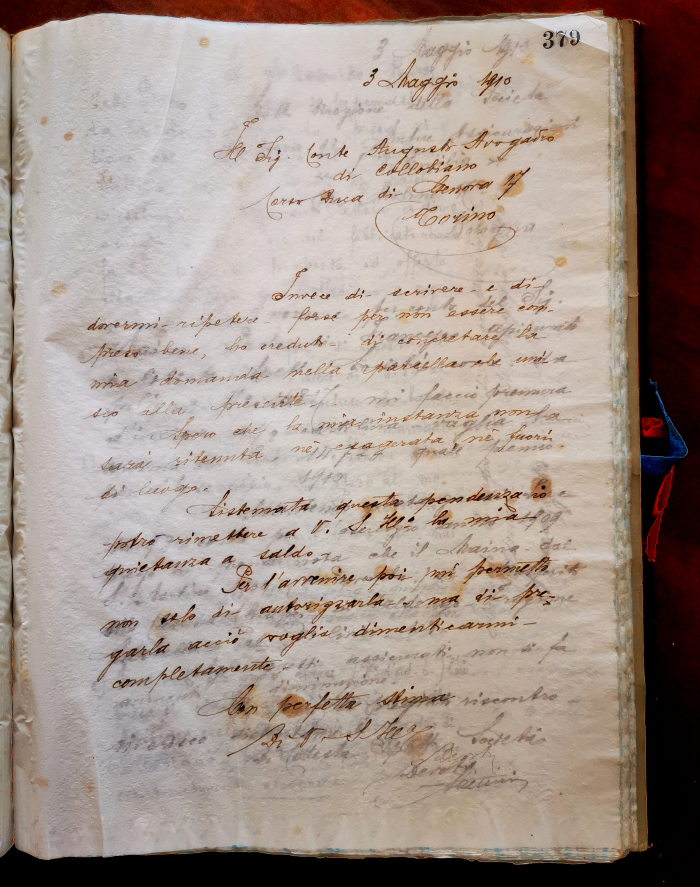 379
3 Maggio 1910
Il Sig. Conte Augusto Avogadro
di Collobiano
Corso Duca di Genova 17
Torino
Invece di scrivere e di
dovermi ripetere forse per non essere com-
preso bene, ho creduto di concretare la
mia domanda nella parcella che uni-
sco alla presente.
Spero che la mia instanza non
sarà ritenuta nè esagerata nè fuori
di luogo.
Sistemata questa pendenza io
potrò rimettere a V. S. Ill. la mia
quietanza a saldo.
Per l'avvenire poi mi permetto
non solo di autorizzarla ma di pre-
garla acciò voglia dimenticarmi
completamente.
Con perfetta stima
Di V. S. Ill.
Devot